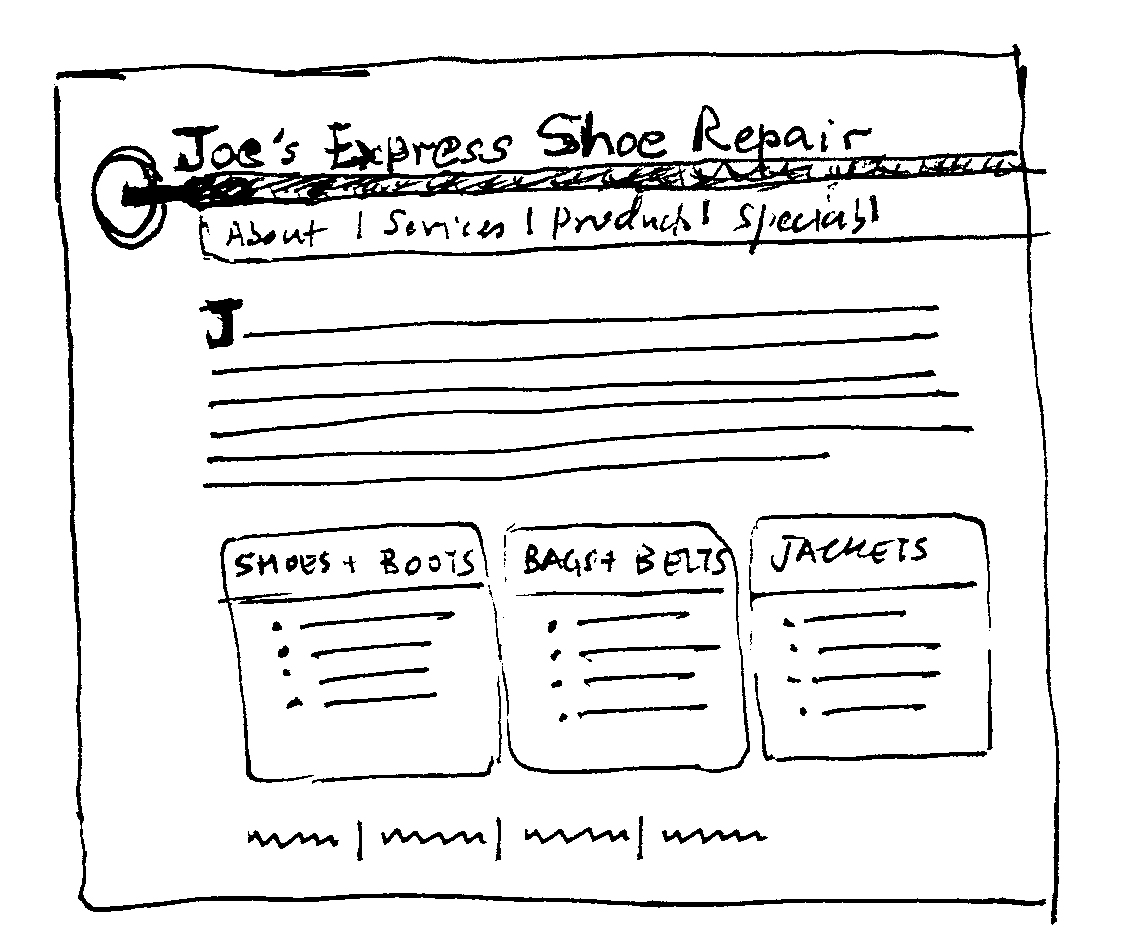 Joe's Express Shoe Repair
About | Services | Products | Specials |
J
SHOES + BOOTS
BAGS + BELTS
JACKETS